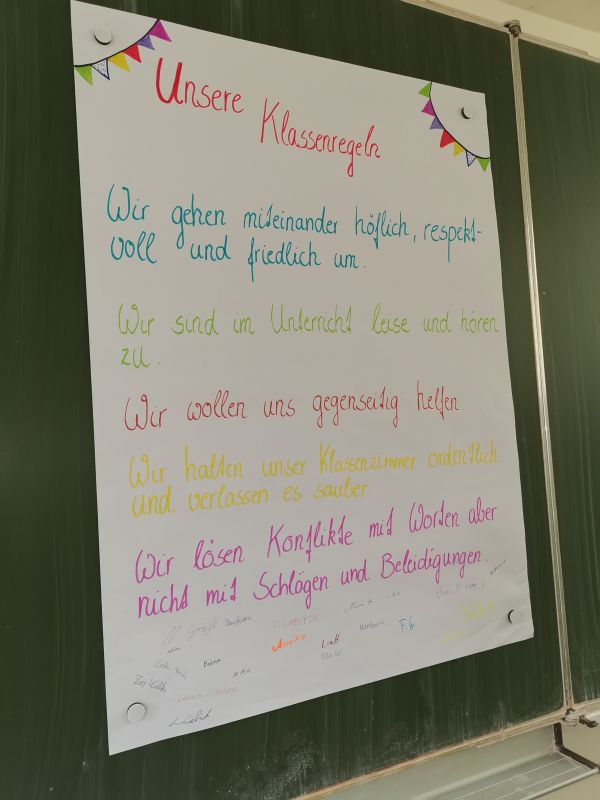 Unsere Klassenregeln
Wir gehen miteinander höflich, respekt-
voll und friedlich um.
Wir sind im Unterricht leise und hören
zu.
Wir wollen uns gegenseitig helfen.
Wir halten unser Klassenzimmer ordentlich
und verlassen es sauber.
Wir lösen Konflikte mit Worten aber
nicht mit Schlägen und Beleidigungen.
F.G.